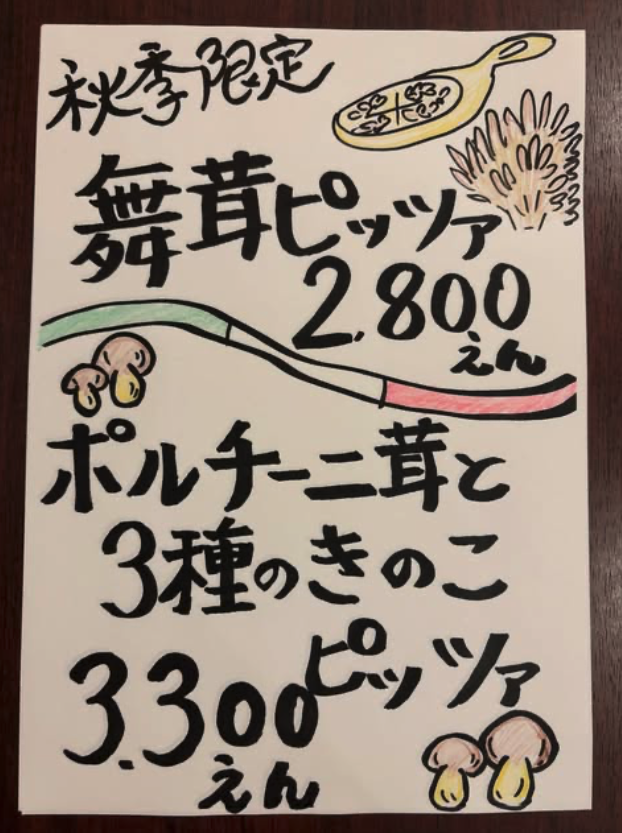 秋季限定
舞茸ピッツァ
2.800
えん
ポルチーニ茸と
3種のきのこ
ピッツァ
3.300
えん